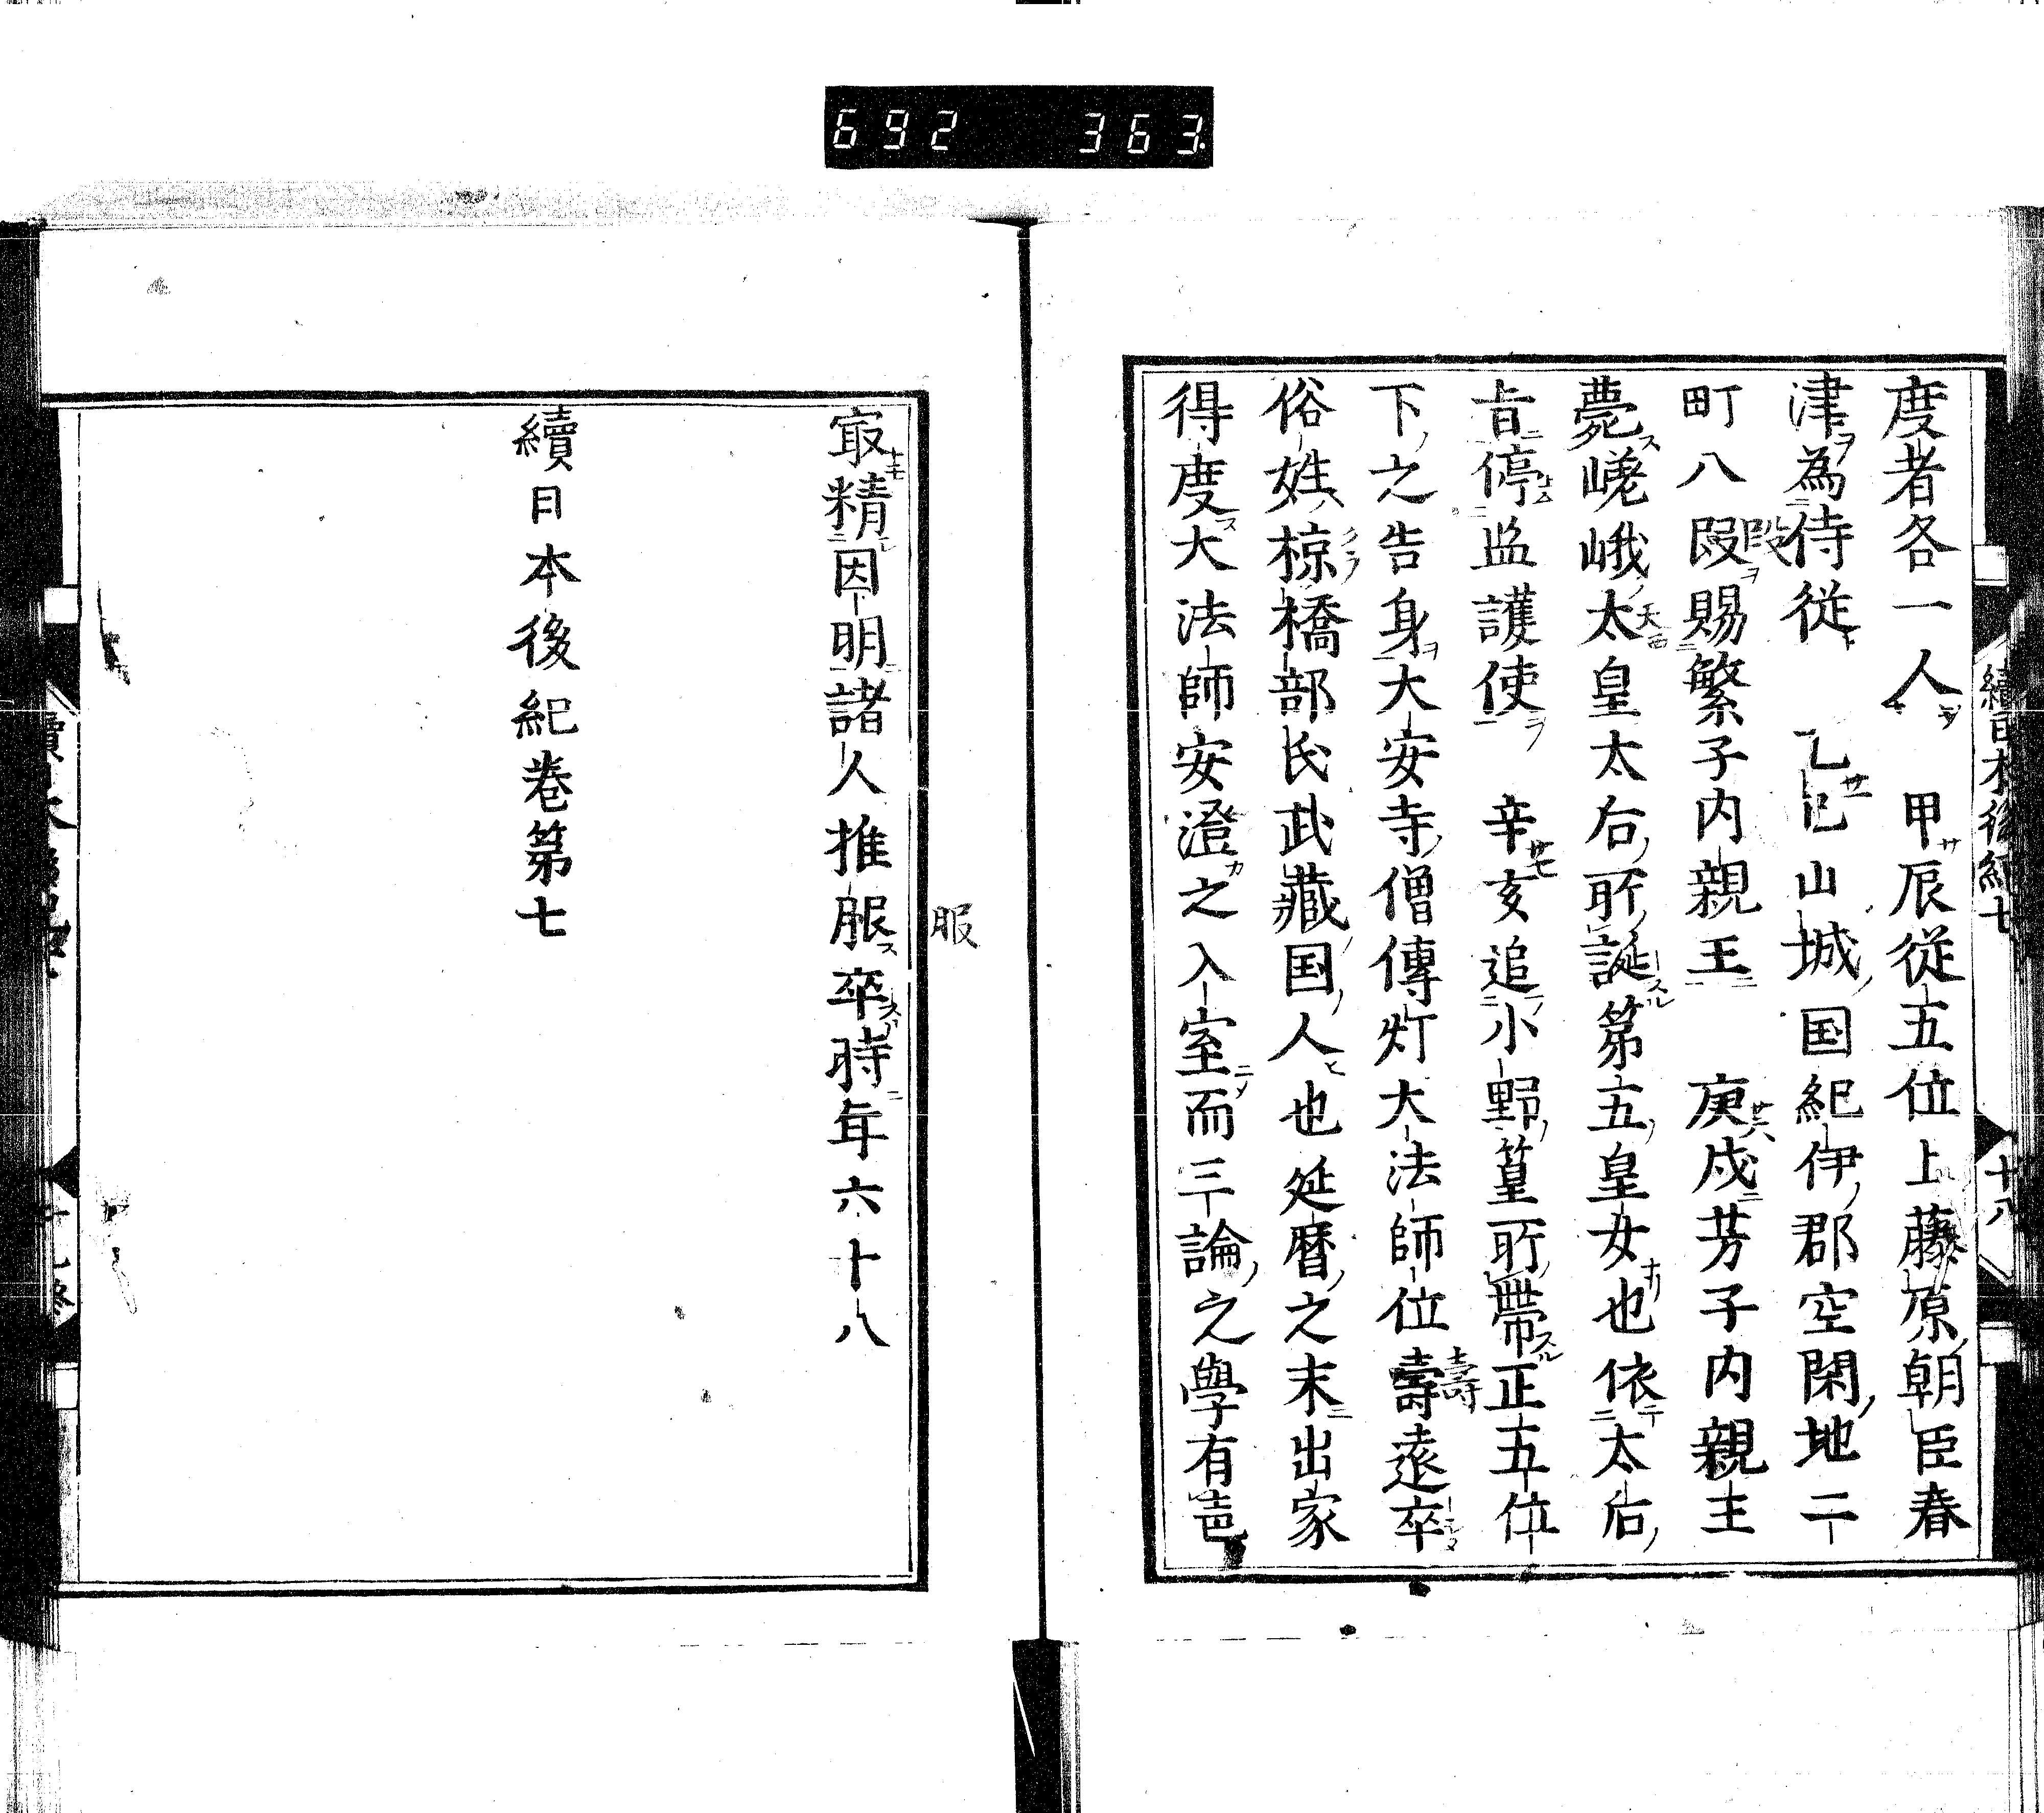 692 363
度者各一人　甲辰従五位上藤原朝臣春
津為侍従　乙巳山城国紀伊郡空閑地二
町八段賜繁子内親王　庚戌芳子内親王
薨嵯峨太皇太后所誕第五皇女也依太后
旨停监護使　辛亥追小野篁所帶正五位
下之告身大安寺僧傳灯大法師位壽遠卒
俗姓椋橋部氏武藏国人也延暦之末出家
得度大法師安澄之入室而三論之學有
㝡精因明諸人推服卒時年六十八
服
續日本後紀卷第七
續日本後紀七
十八